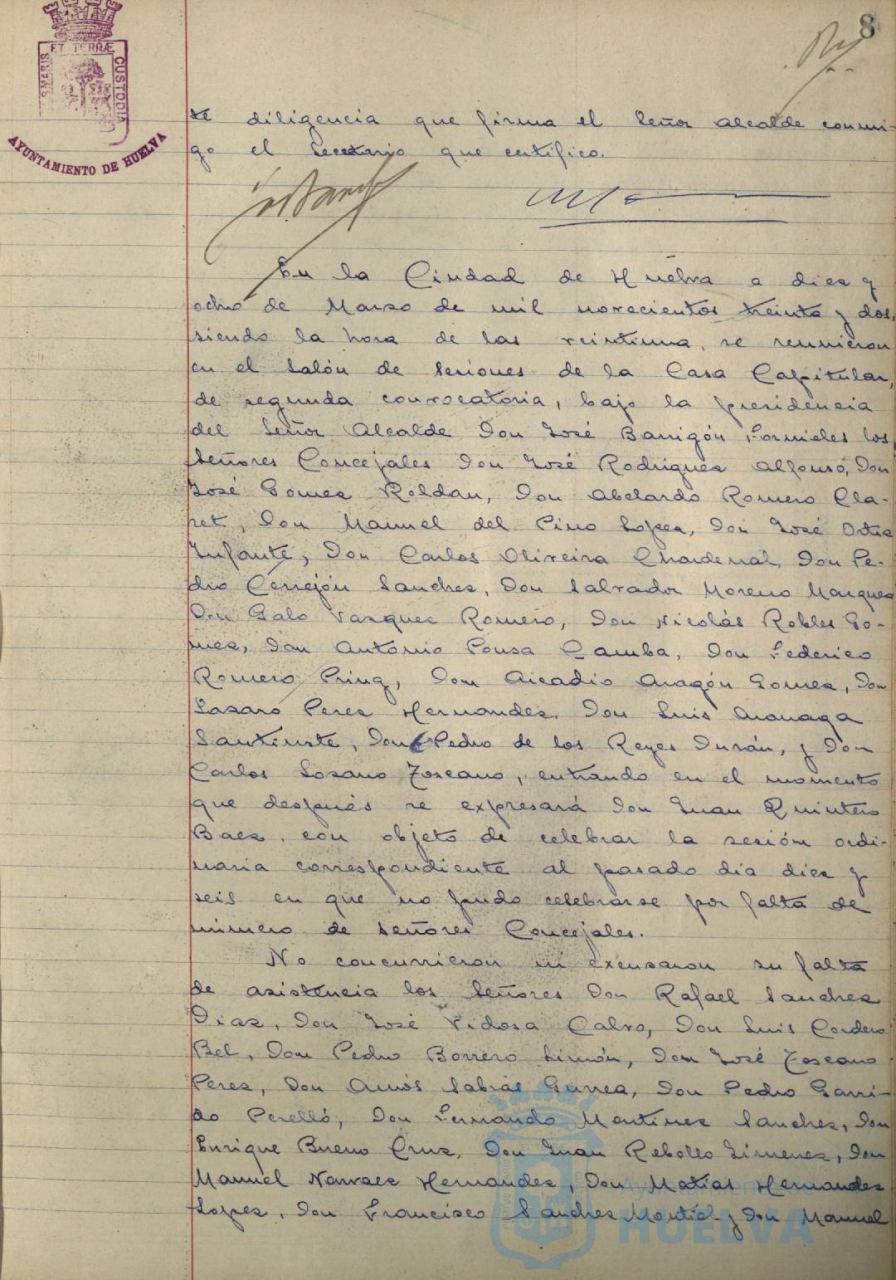 8
PORTUS MARIS ET TERRÆ CUSTODIA
AYUNTAMIENTO DE HUELVA
te diligencia que firma el Señor Alcalde conmi-
go el Secretario que certifico.
En la Ciudad de Huelva a diez y
ocho de Marzo de mil novecientos treinta y dos,
siendo la hora de las veintiuna, se reunieron
en el Salón de Sesiones de la Casa Capitular,
de segunda convocatoria, bajo la presidencia
del Señor Alcalde Don José Barrigón Fornieles los
Señores Concejales Don José Rodriguez Alfonso, Don
José Gomez Roldan, Don Abelardo Romero Cla-
ret, Don Manuel del Pino Lopez, Don José Ortiz
Infante, Don Carlos Oliveira Chardenal, Don Pe-
dro Cerrejón Sanchez, Don Salvador Moreno Marquez
Don Galo Vazquez Romero, Don Nicolás Robles Go-
mez, Don António Pousa Camba, Don Federico
Romero Prinq, Don Arcadio Aragón Gomez, Don
Lazaro Perez Hernandez, Don Luis Aronaga
Santiuste, Don Pedro de los Reyes Durán, y Don
Carlos Lozano Toscano, entrando en el momento
que después se expresará Don Juan Quintero
Baez, con objeto de celebrar la sesión ordi-
naria correspondiente al pasado día diez y
seis en que no pudo celebrarse por falta de
número de Señores Concejales.
No concurrieron ni excusaron su falta
de asistencia los Señores Don Rafael Sanchez
Diaz, Don José Vidosa Calvo, Don Luis Cordero
Bel, Don Pedro Borrero Limón, Don José Toscano
Perez, Don Amós Sabrás Gurrea, Don Pedro Garri-
do Perelló, Don Fernando Martinez Sanchez, Don
Enrique Bueno Cruz, Don Juan Rebollo Jimenez, Don
Manuel Narvaez Hernandez, Don Matias Hernandez
Lopez, Don Francisco Sanchez Montiel y Don Manuel
Ayuntamiento de
HUELVA